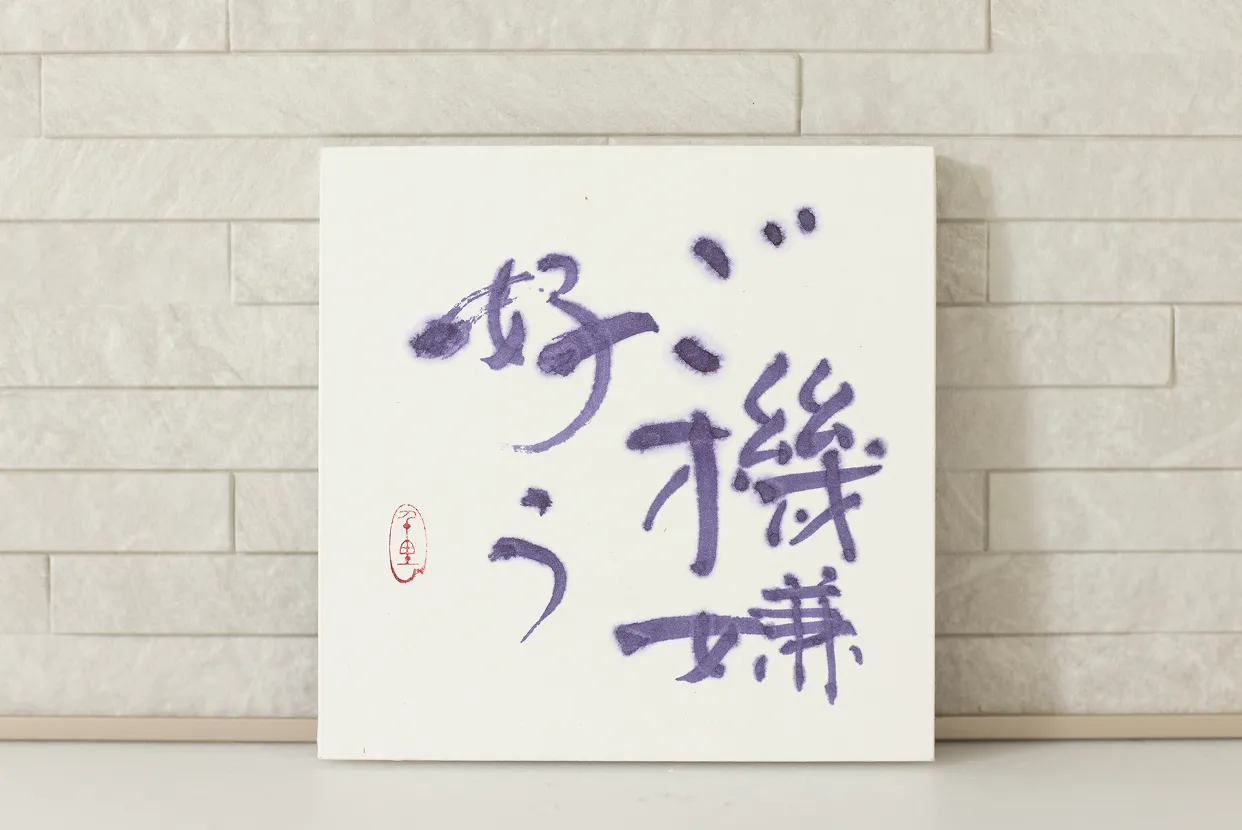 ご機嫌
好う